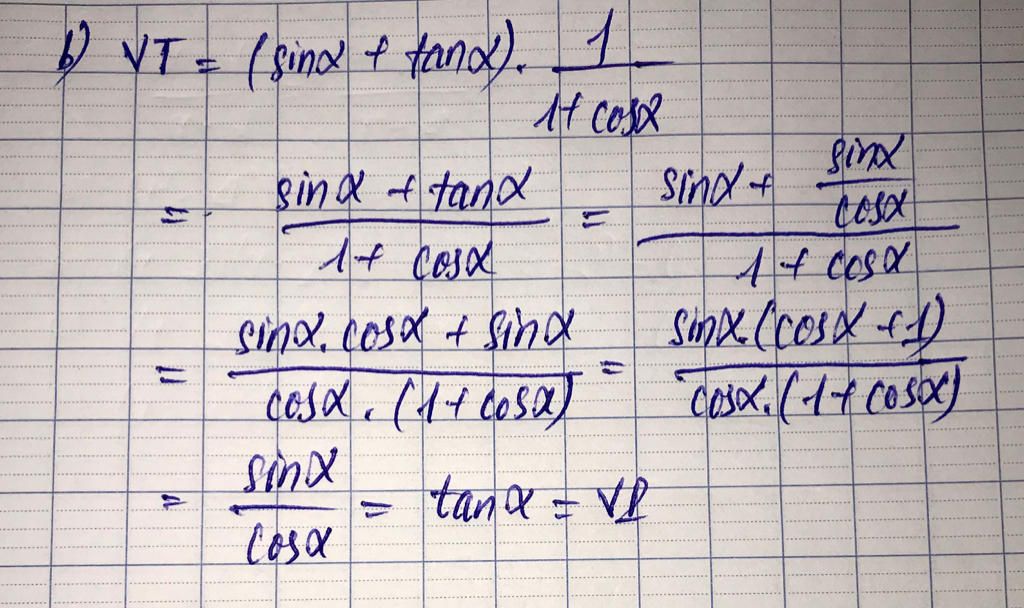 b) VT = (sinα + tanα). 1/(1+ cosα)
= (sinα + tanα)/(1+ cosα) = (sinα + sinα/cosα)/(1 + cosα)
= (sinα. cosα + sinα)/(cosα . (1+ cosα)) = (sinα.(cosα +1))/(cosα.(1+ cosα))
= sinα/cosα = tanα = VP